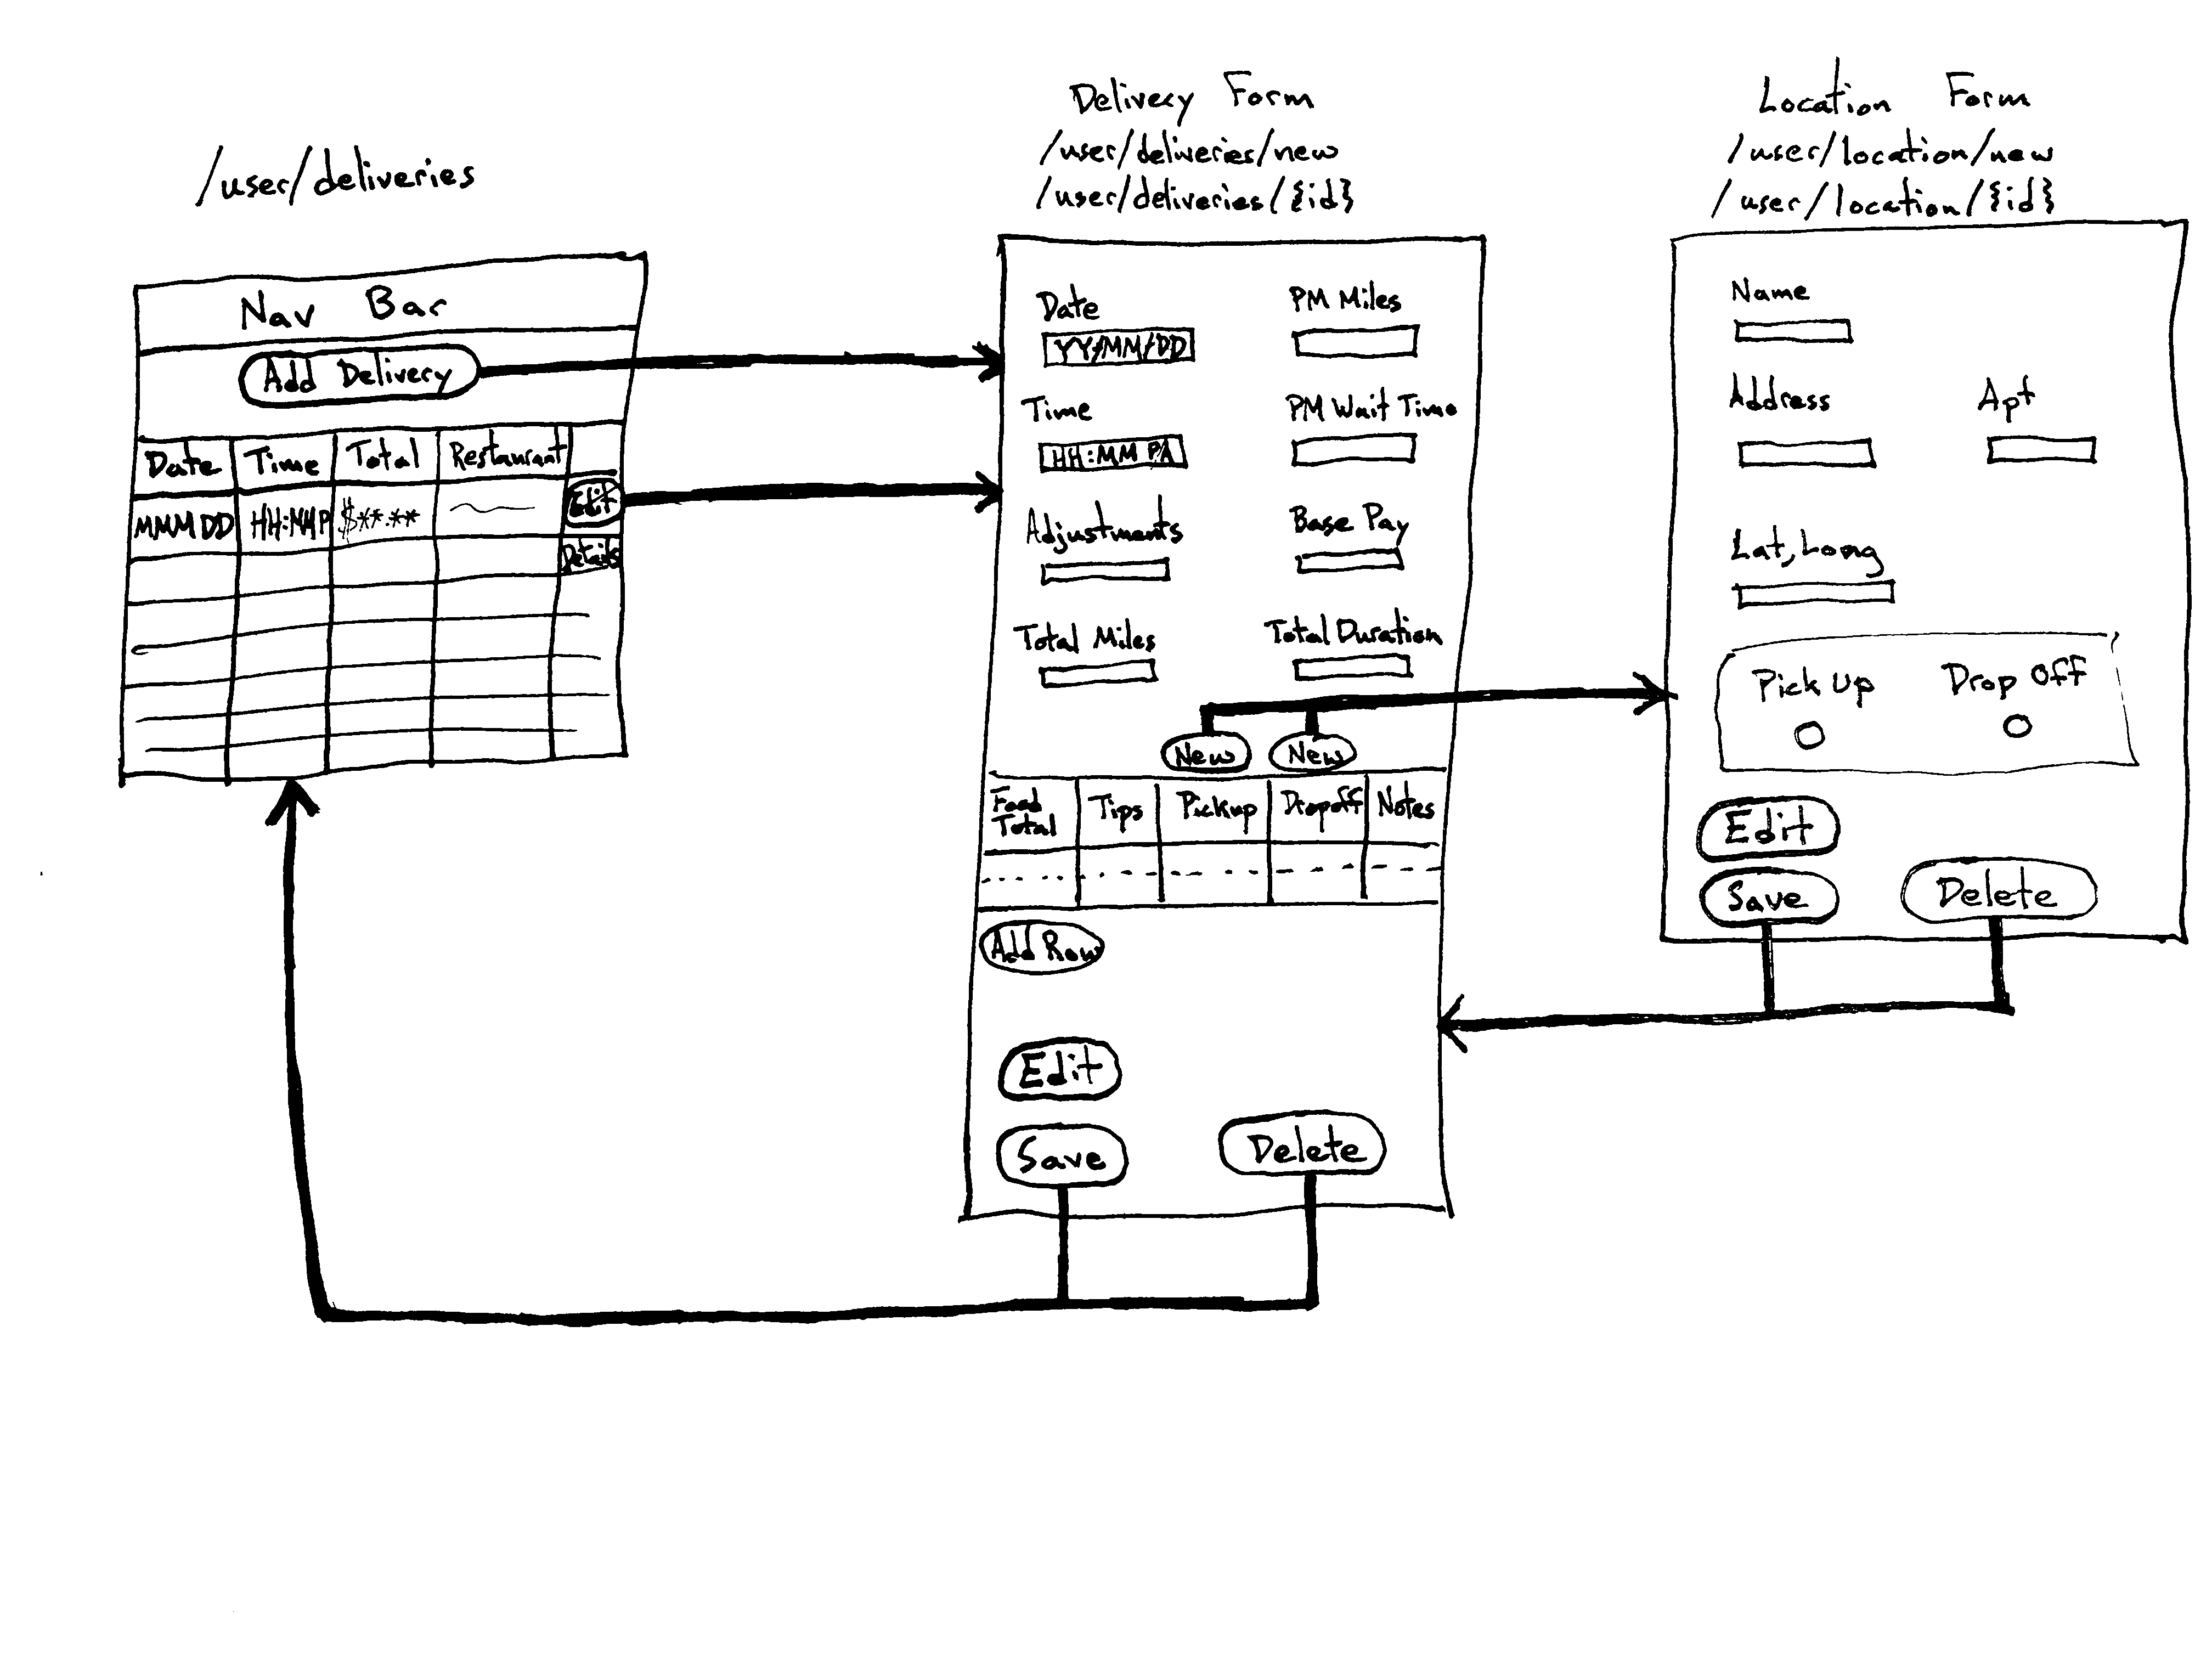 /user/deliveries
Nav Bar
Add Delivery
Date Time Total Restaurant
MMM DD HH:MMP $**.** Edit
Details
Delivery Form
/user/deliveries/new
/user/deliveries/{id}
Date PM Miles
YY/MM/DD
Time PM Wait Time
HH:MM PA
Adjustments Base Pay
Total Miles Total Duration
New New
Food Total Tips Pickup Dropoff Notes
Add Row
Edit
Save Delete
Location Form
/user/location/new
/user/location/{id}
Name
Address Apt
Lat, Long
Pick Up Drop Off
Edit
Save Delete